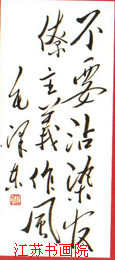 不要沾染官
僚主義作風
毛澤东
江苏书画院